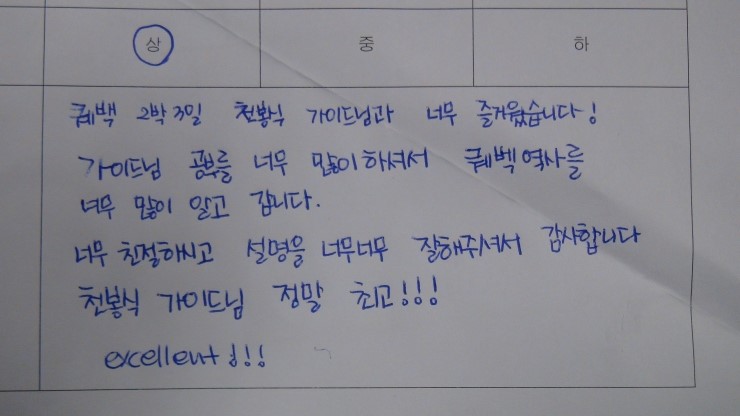 상 중 하
퀘백 2박3일 천봉식 가이드님과 너무 즐거웠습니다!
가이드님 공부를 너무 많이하셔서 퀘벡역사를
너무 많이 알고 갑니다.
너무 친절하시고 설명을 너무너무 잘해주셔서 감사합니다
천봉식 가이드님 정말 최고!!!
excellent!!!